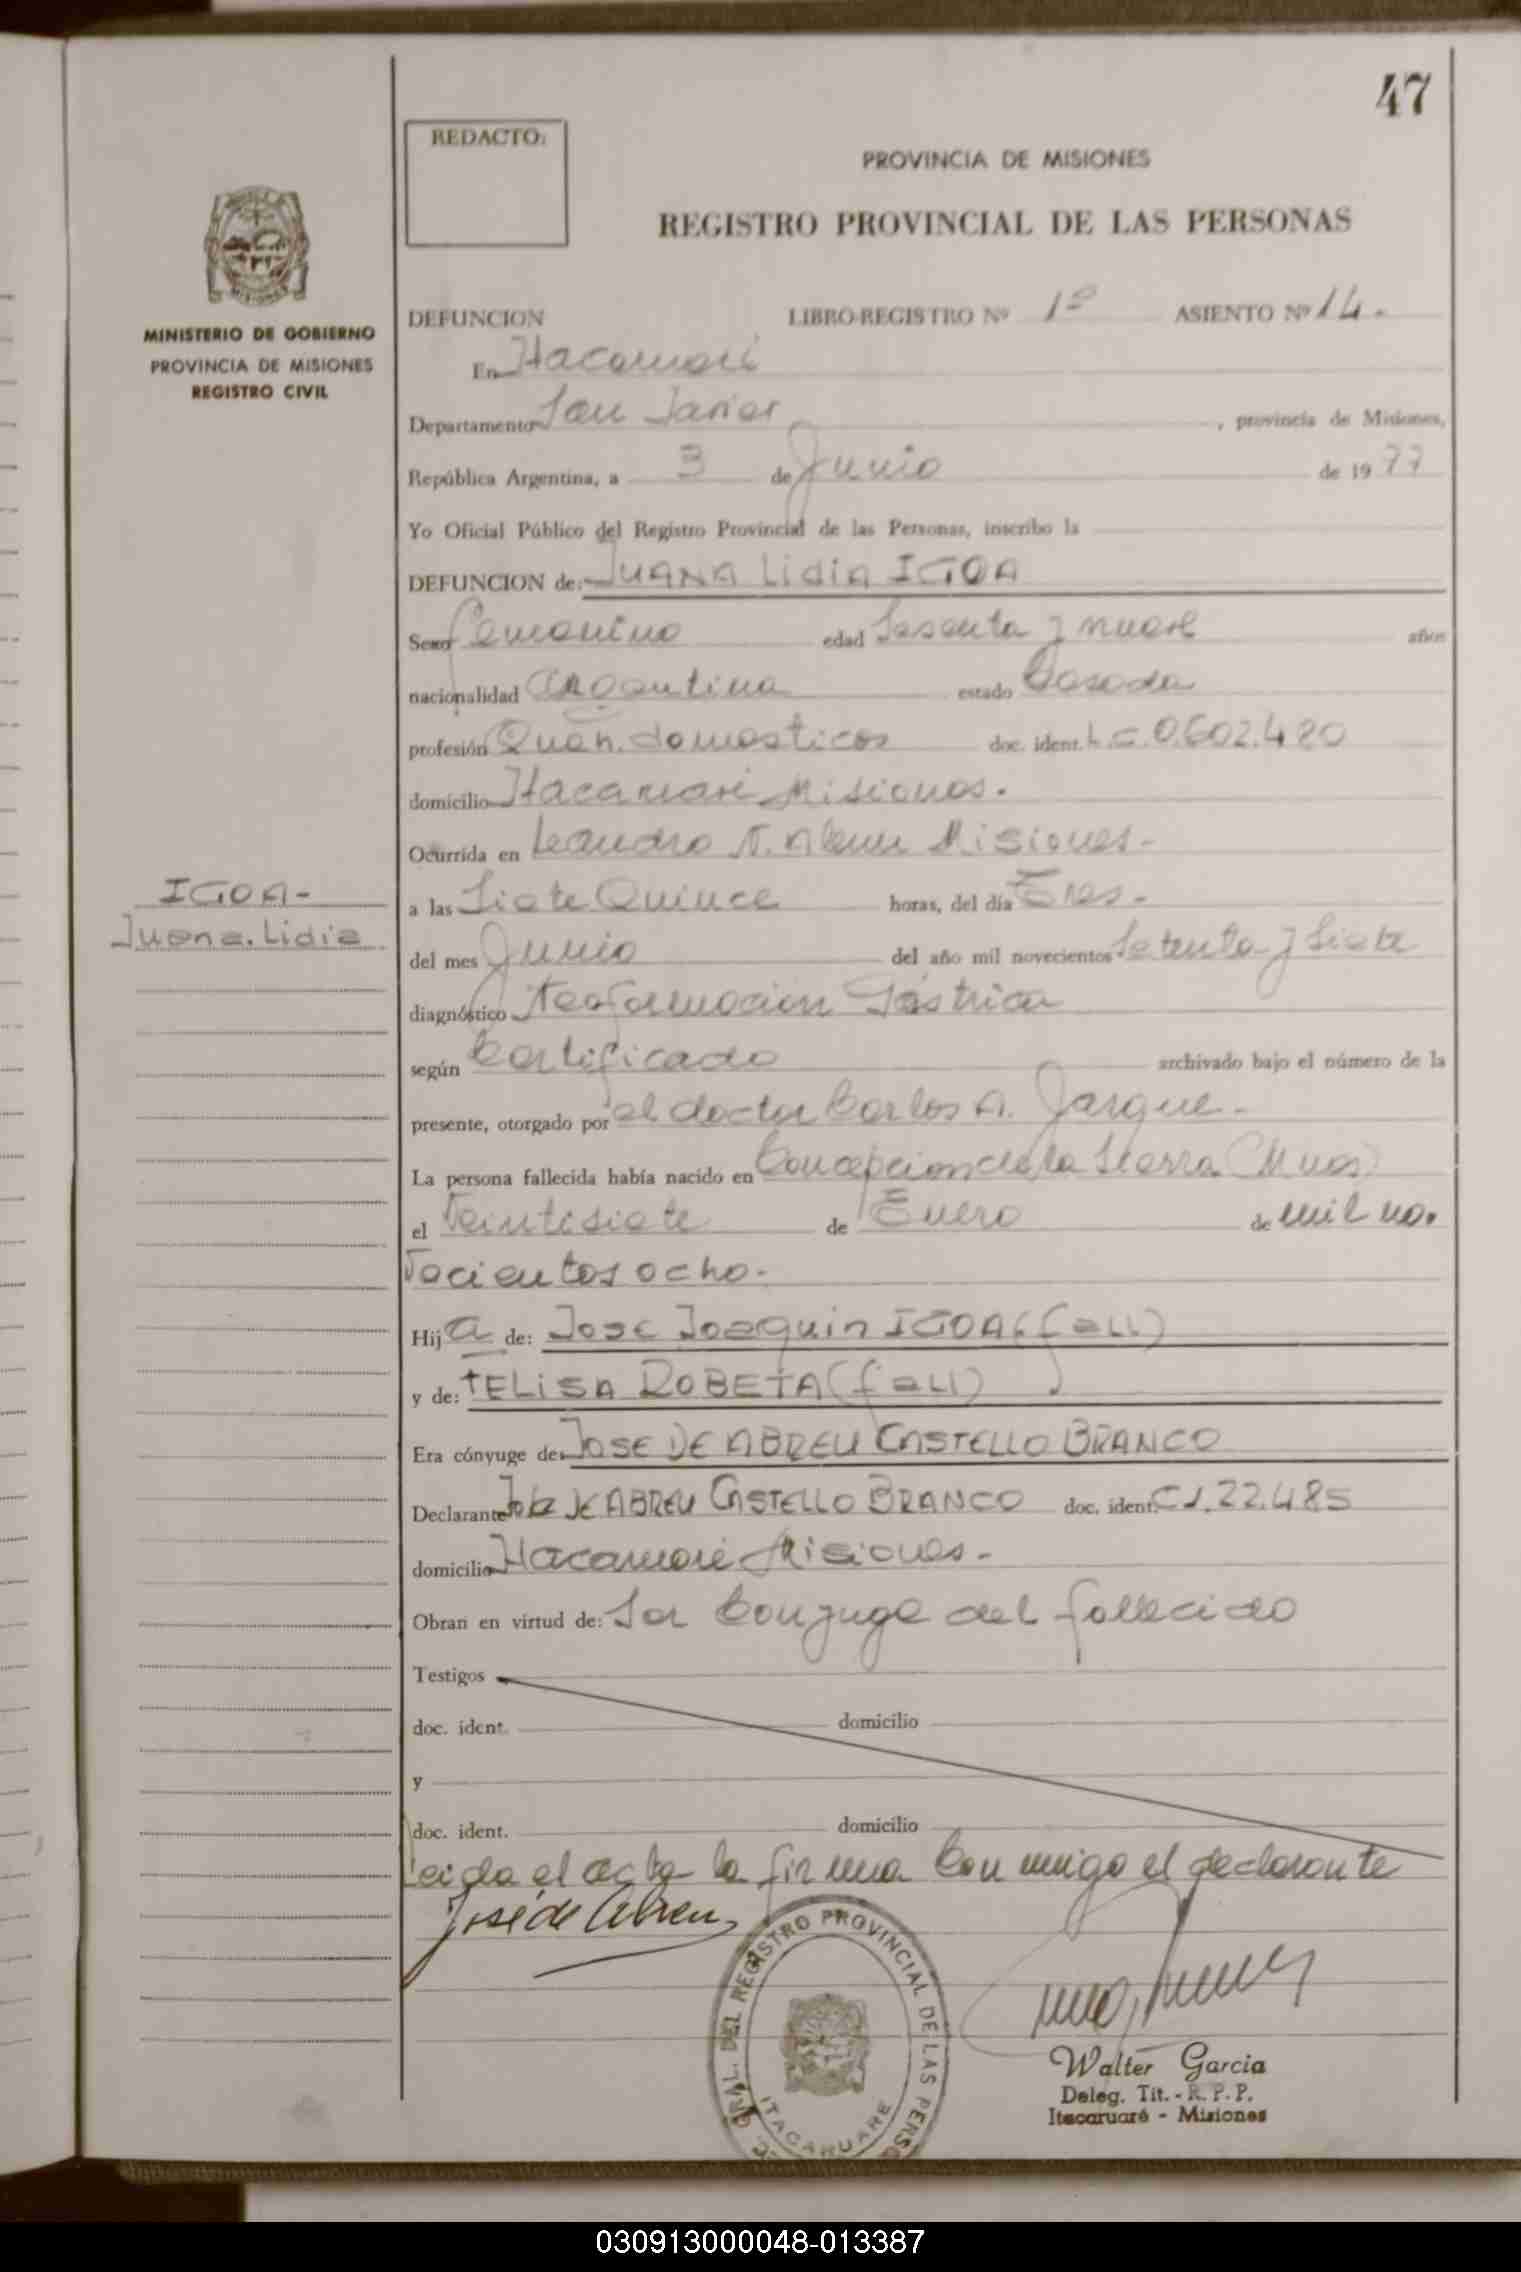 47
REDACTO:
PROVINCIA DE MISIONES
REGISTRO PROVINCIAL DE LAS PERSONAS
MINISTERIO DE GOBIERNO
PROVINCIA DE MISIONES
REGISTRO CIVIL
DEFUNCION LIBRO-REGISTRO Nº 1º ASIENTO Nº 14.
En Itacaruaré
Departamento San Javier, provincia de Misiones,
República Argentina, a 3 de Junio de 1977
Yo Oficial Público del Registro Provincial de las Personas, inscribo la
DEFUNCION de: JUANA LidiA IGOA
Sexo Femenino edad Sesenta y nueve años
nacionalidad argentina estado Casada
profesión Queh. domesticos doc. ident. L.C. 0.602.480
domicilio Itacaruaré Misiones.
Ocurrida en Leandro N. Alem Misiones-
IGOA-
Juana. Lidia
a las Siete Quince horas, del día Tres-
del mes Junio del año mil novecientos Setenta y Siete
diagnóstico Neoformacion Gástrica
según Certificado archivado bajo el número de la
presente, otorgado por el doctor Carlos A. Jarque-
La persona fallecida había nacido en Concepcion de la Sierra (Mnes)
el Veintisiete de Enero de mil no.
Vecientos ocho-
Hija de: Jose Joaquin IGOA (fall)
y de: TELISA ROBETA (fall)
Era cónyuge de: JOSE DE ABREU CASTELLO BRANCO
Declarante José de ABREU CASTELLO BRANCO doc. ident. C.I. 22.485
domicilio Itacaruaré Misiones-
Obran en virtud de: Ser Conyuge del fallecido
Testigos
doc. ident. domicilio
y
doc. ident. domicilio
Leida el acta la firma Conmigo el declarante
José de Abreu
GRAL. DEL REGISTRO PROVINCIAL DE LAS PERSO
ITACARUARE
Walter Garcia
Deleg. Tit. - R. P. P.
Itacaruaré - Misiones
030913000048-013387